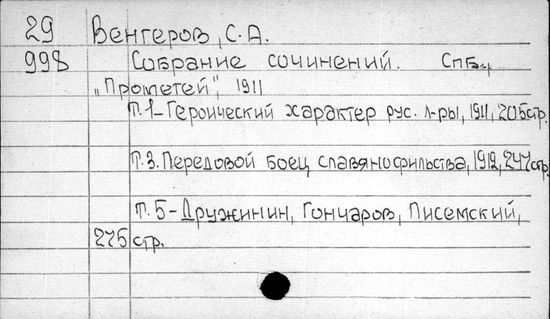 29 Венгеров, С.А.
998 Собрание сочинений. Спб.,
„Прометей", 1911
Т.1-Героический характер рус. л-ры, 1911, 205стр.
Т.3. Передовой боец славянофильства, 1912, 247стр.
Т.5-Дружинин, Гончаров, Писемский,
275 стр.